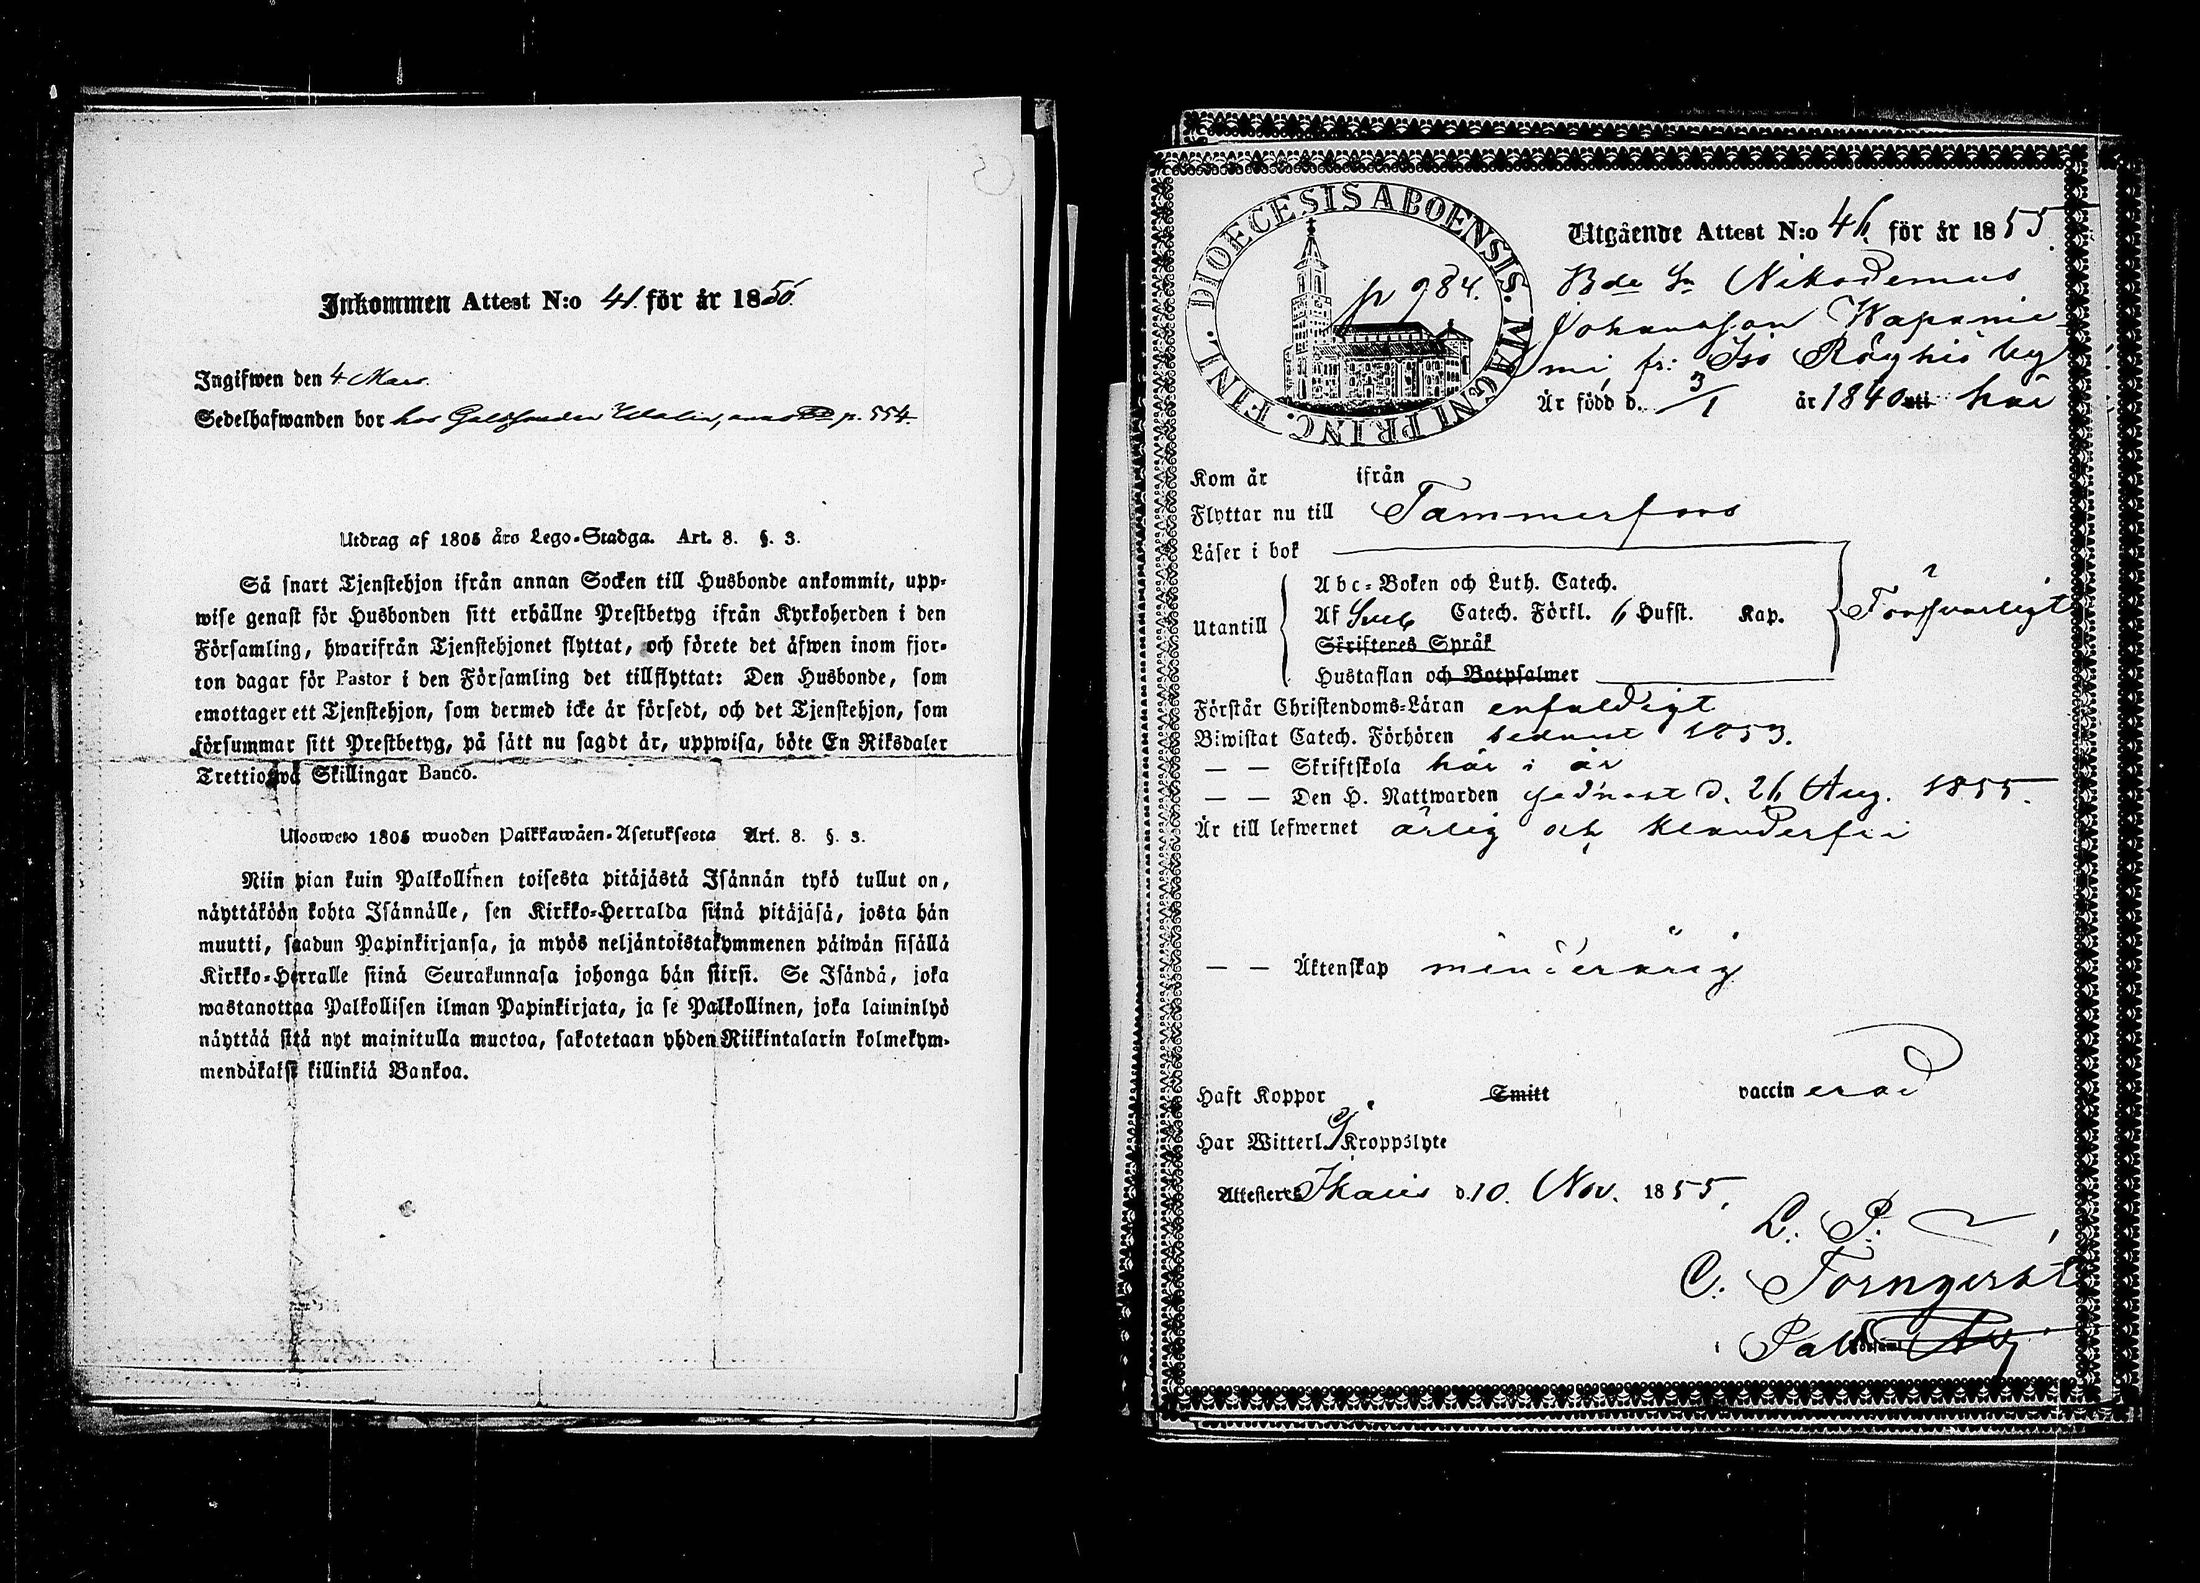 Inkommen Attest N:o 41. för år 1856.
Ingifwen den 4 Mars.
Sedelhafwanden bor hos p. 554.
Utdrag af 1805 års Lego-Stadga. Art. 8. §. 3.
Så snart Tjenstehjon ifrån annan Socken till Husbonde ankommit, upp-
wise genast för Husbonden sitt erhållne Prestbetyg ifrån Kyrkoherden i den
Församling, hwarifrån Tjenstehjonet flyttat, och förete det äfwen inom fjor-
ton dagar för Pastor i den Församling det tillflyttat: Den Husbonde, som
emottager ett Tjenstehjon, som dermed icke är försedt, och det Tjenstehjon, som
försummar sitt Prestbetyg, på sätt nu sagdt är, uppwisa, böte En Riksdaler
Trettiotwå Skillingar Banco.
Ulosweto 1805 wuoden Palkkawäen-Asetuksesta Art. 8. §. 3.
Niin pian kuin Palkollinen toisesta pitäjästä Isännän tykö tullut on,
näyttäköön kohta Isännälle, sen Kirkko-Herralda siinä pitäjäsä, josta hän
muutti, saadun Papinkirjansa, ja myös neljäntoistakymmenen päiwän sisällä
Kirkko-Herralle siinä Seurakunnasa johonga hän siirsi. Se Isändä, joka
wastanottaa Palkollisen ilman Papinkirjata, ja se Palkollinen, joka laiminlyö
näyttää sitä nyt mainitulla muotoa, sakotetaan yhden Riikintalarin kolmekym-
mendäkaksi killinkiä Bankoa.
DIOECESIS ABOENSIS. MAGNI PRINC. FINL.
p 984.
Utgående Attest N:o 46. för år 1855.
Bde Sn Nikodemus
Johansson Wapanie-
mi fr: Iso Röyhiö by
Är född d. 3/1 år 1840 uti här
Kom år ifrån
Flyttar nu till Tammerfors
Läser i bok
Utantill
Abc-Boken och Luth. Catech.
Af Sveb Catech. Förkl. 6 Hufst. Kap.
Skriftenes Språk
Hustaflan och Botpsalmer
Försvarligt
Förstår Christendoms-Läran enfaldigt
Biwistat Catech. Förhören sednast 1853.
— — Skriftskola här i år
— — Den H. Nattwarden sednast d. 26 Aug. 1855.
Är till lefwernet ärlig och klanderfri
— — Äktenskap minderårig
Haft Koppor Smitt vaccinerad
Har Witterl. ej Kroppslyte
Attesteras Ikalis d. 10. Nov. 1855.
L. P.
C. Forngerst